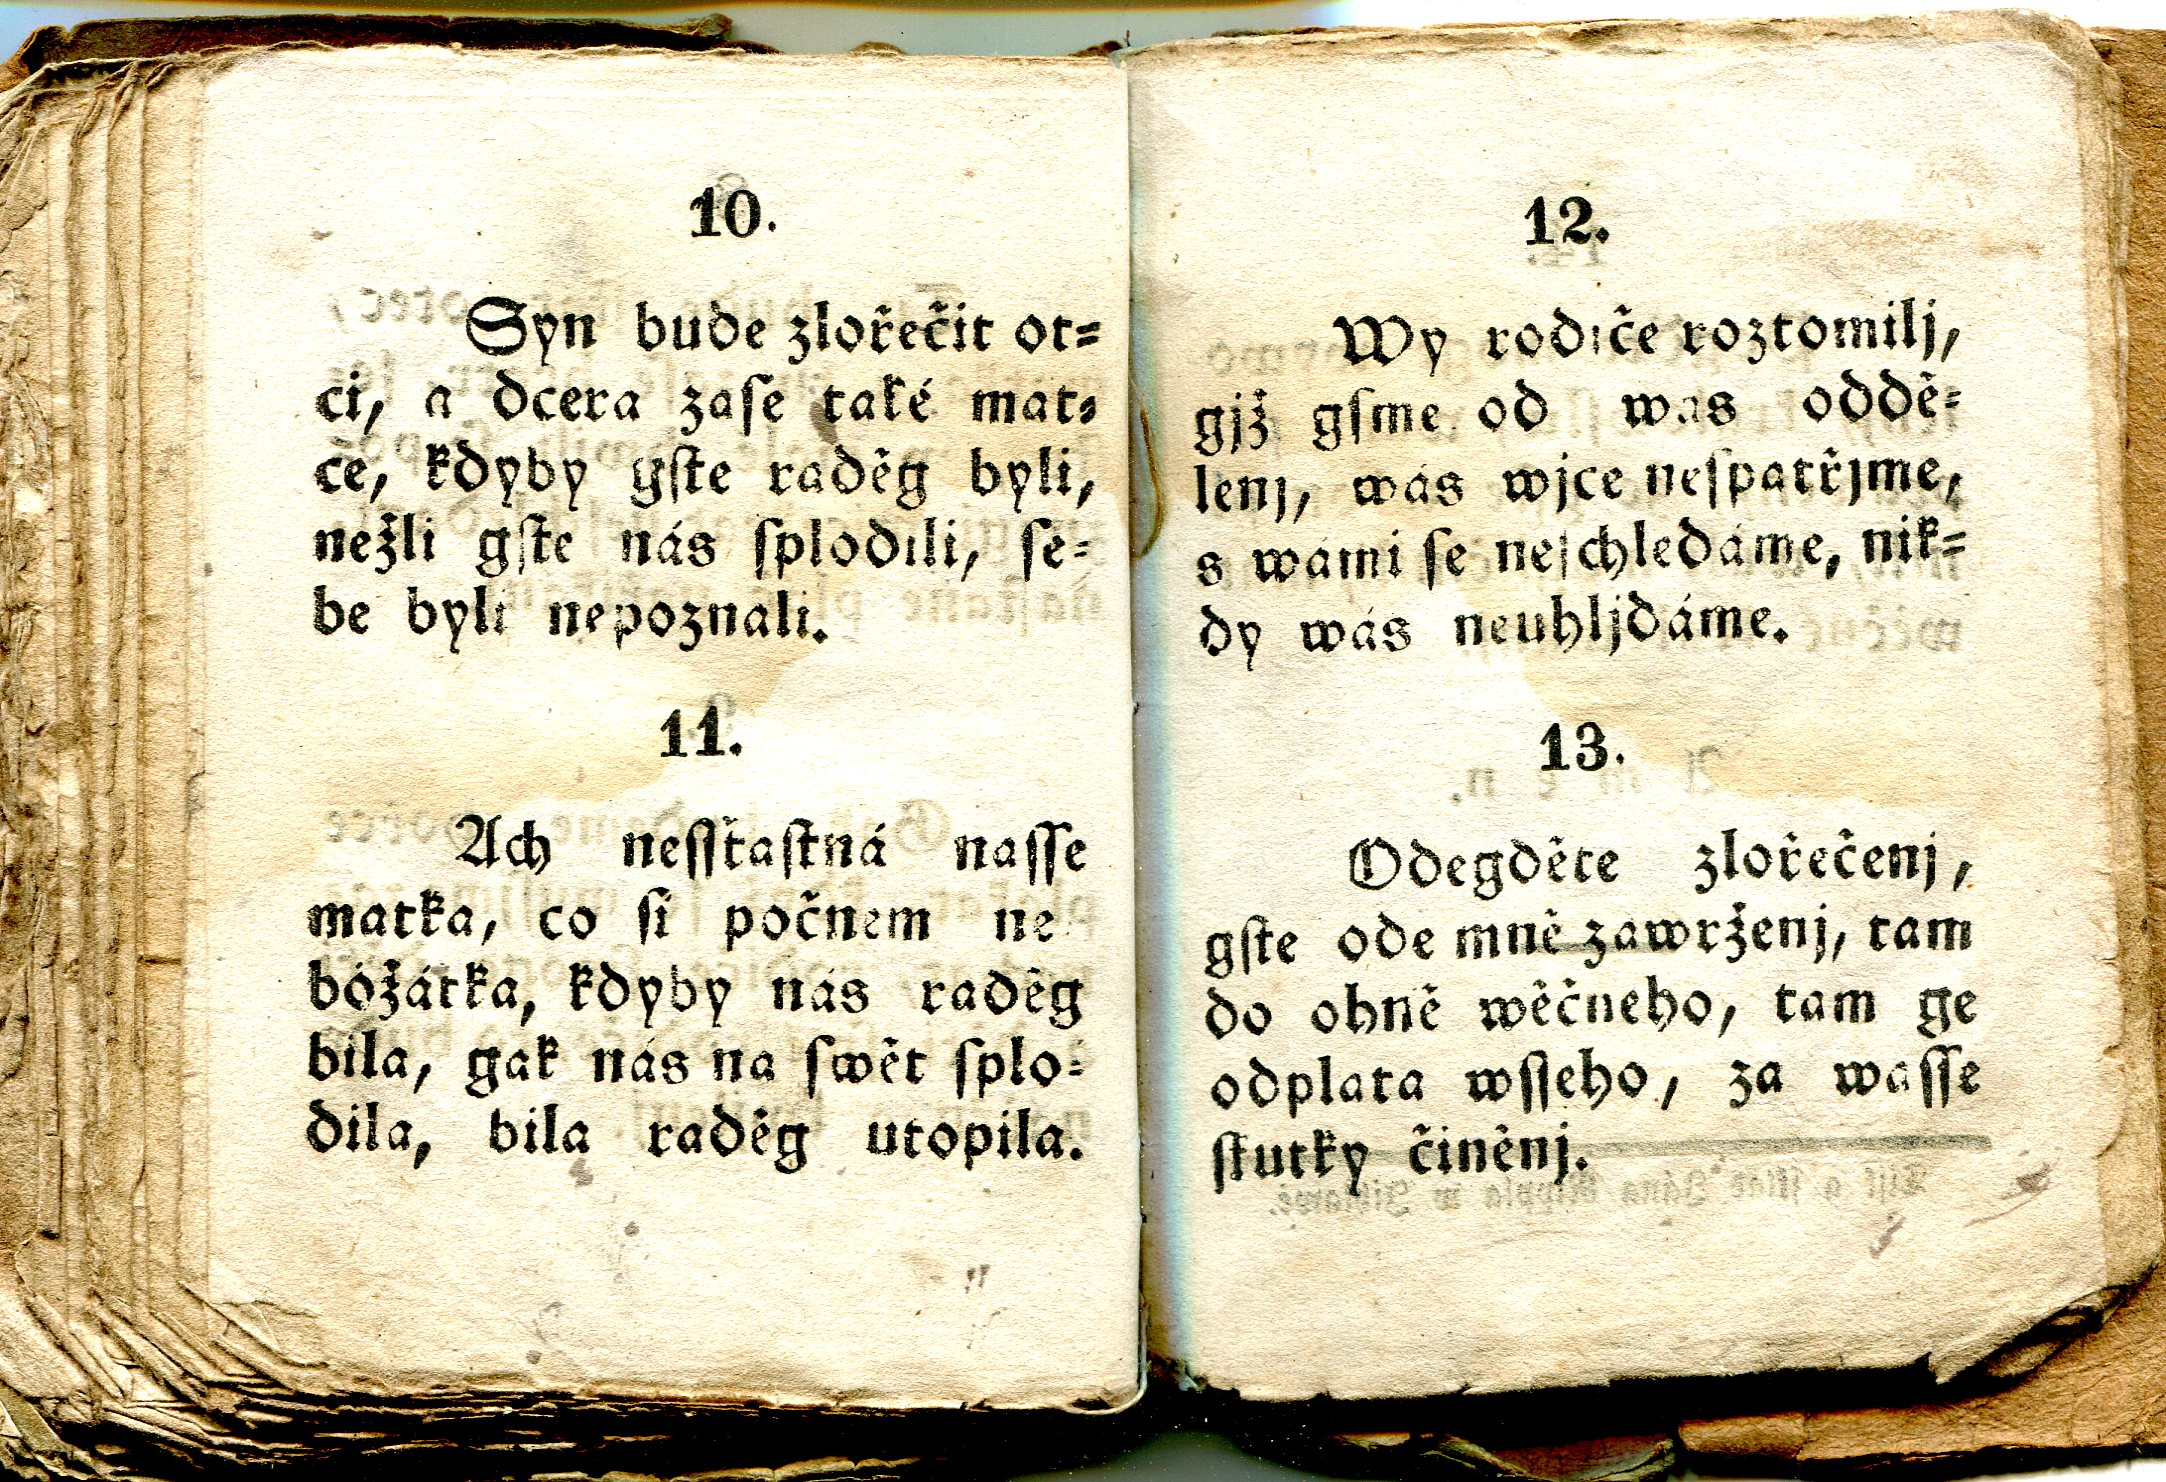 10.
Syn bude zlořečit ot=
ci, a dcera zaſe také mat=
ce, kdyby gſte raděg byli,
nežli gſte nás ſplodili, ſe=
be byli nepoznali.
11.
Ach neſſťaſtná naſſe
matka, co ſi počnem ne
bóžátka, kdyby nás raděg
bila, gak nás na ſwět ſplo=
dila, bila raděg utopila.
12.
Wy rodiče roztomilj,
gjž gſme od was oddě=
lenj, wás wjce neſpatřjme,
s wámi ſe neſchledáme, nik=
dy wás neuhljdáme.
13.
Odegděte zlořečenj,
gſte ode mně zawrženj, tam
do ohně wěčneho, tam ge
odplata wſſeho, za waſſe
ſkutky činěnj.